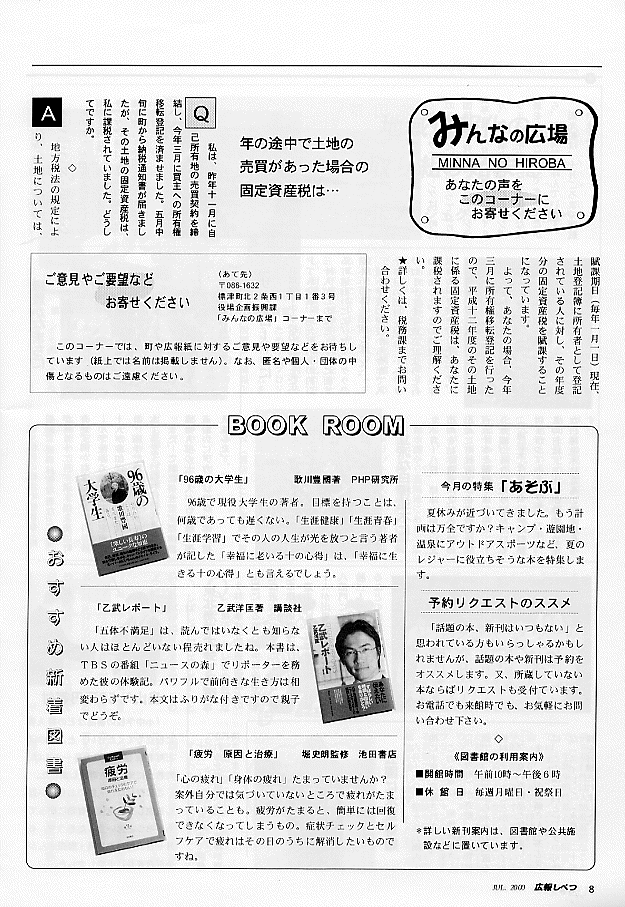 みんなの広場
MINNA NO HIROBA
あなたの声を
このコーナーに
お寄せください
年の途中で土地の
売買があった場合の
固定資産税は…
Q
私は、昨年十一月に自
己所有地の売買契約を締
結し、今年三月に買主への所有権
移転登記を済ませました。五月中
旬に町から納税通知書が届きまし
たが、その土地の固定資産税は、
私に課税されていました。どうし
てですか。
◇
A
地方税法の規定によ
り、土地については、
賦課期日(毎年一月一日)現在、
土地登記簿に所有者として登記
されている人に対し、その年度
分の固定資産税を賦課すること
になっています。
よって、あなたの場合、今年
三月に所有権移転登記を行った
ので、平成十二年度のその土地
に係る固定資産税は、あなたに
課税されますのでご理解くださ
い。
★詳しくは、税務課までお問い
合わせください。
ご意見やご要望など
お寄せください
(あて先)
〒086-1632
標津町北2条西1丁目1番3号
役場企画振興課
「みんなの広場」コーナーまで
このコーナーでは、町や広報紙に対するご意見や要望などをお待ちし
ています(紙上では名前は掲載しません)。なお、匿名や個人・団体の中
傷となるものはご遠慮ください。
BOOK ROOM
●おすすめ新書図書●
96歳の
大学生
歌川豊國
「96歳の大学生」 歌川豊國著 PHP研究所
96歳で現役大学生の著者。目標を持つことは、
何歳であっても遅くない。「生涯健康」「生涯青春」
「生涯学習」でその人の人生が光を放つと言う著者
が記した「幸福に老いる十の心得」は、「幸福に生
きる十の心得」とも言えるでしょう。
「乙武レポート」 乙武洋匡著 講談社
「五体不満足」は、読んではいなくとも知らな
い人はほとんどいない程売れましたね。本書は、
TBSの番組「ニュースの森」でリポーターを務
めた彼の体験記。パワフルで前向きな生き方は相
変わらずです。本文はふりがな付きですので親子
でどうぞ。
乙武レポート
疲労
「疲労 原因と治療」 堀史朗監修 池田書店
「心の疲れ」「身体の疲れ」たまっていませんか?
案外自分では気づいていないところで疲れがたま
っていることも。疲労がたまると、簡単には回復
できなくなってしまうもの。症状チェックとセル
フケアで疲れはその日のうちに解消したいもので
すね。
今月の特集「あそぶ」
夏休みが近づいてきました。もう計
画は万全ですか?キャンプ・遊園地・
温泉にアウトドアスポーツなど、夏の
レジャーに役立ちそうな本を特集しま
す。
予約リクエストのススメ
「話題の本、新刊はいつもない」と
思われている方もいらっしゃるかもし
れませんが、話題の本や新刊は予約を
オススメします。又、所蔵していない
本ならばリクエストも受付ています。
お電話でも来館時でも、お気軽にお問
い合わせ下さい。
◇
《図書館の利用案内》
■開館時間 午前10時~午後6時
■休館日 毎週月曜日・祝祭日
*詳しい新刊案内は、図書館や公共施
設などに置いています。
JUL. 2000 広報しべつ 8